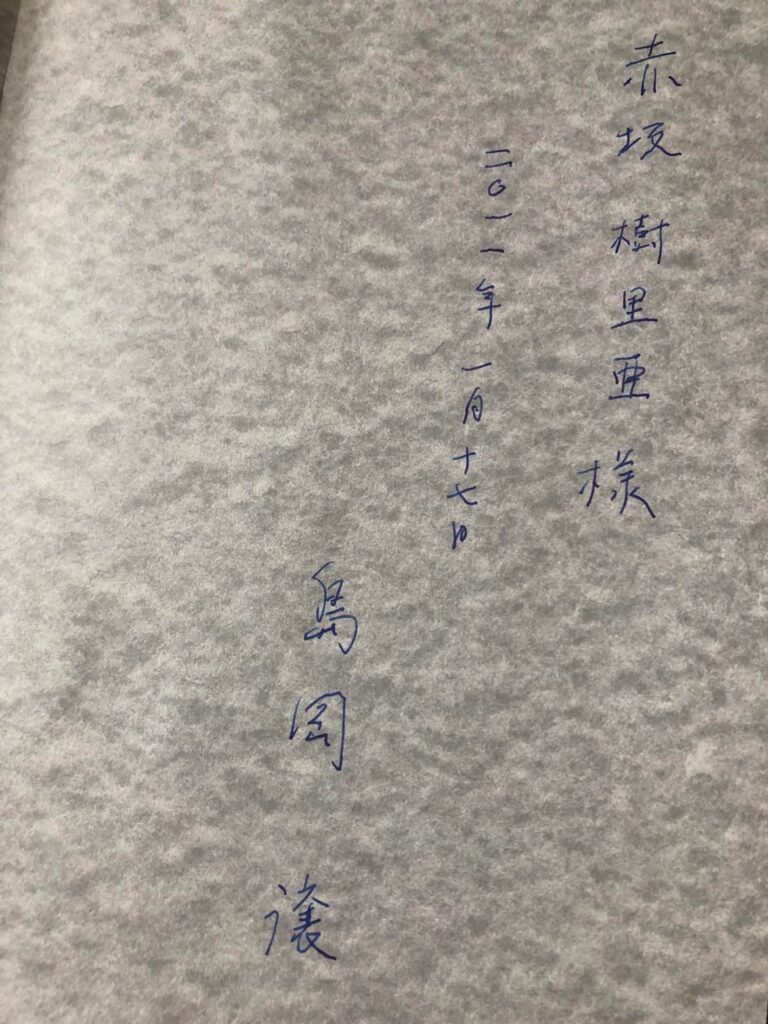 赤坂樹里亜様
二〇一一年一月十七日
島岡譲